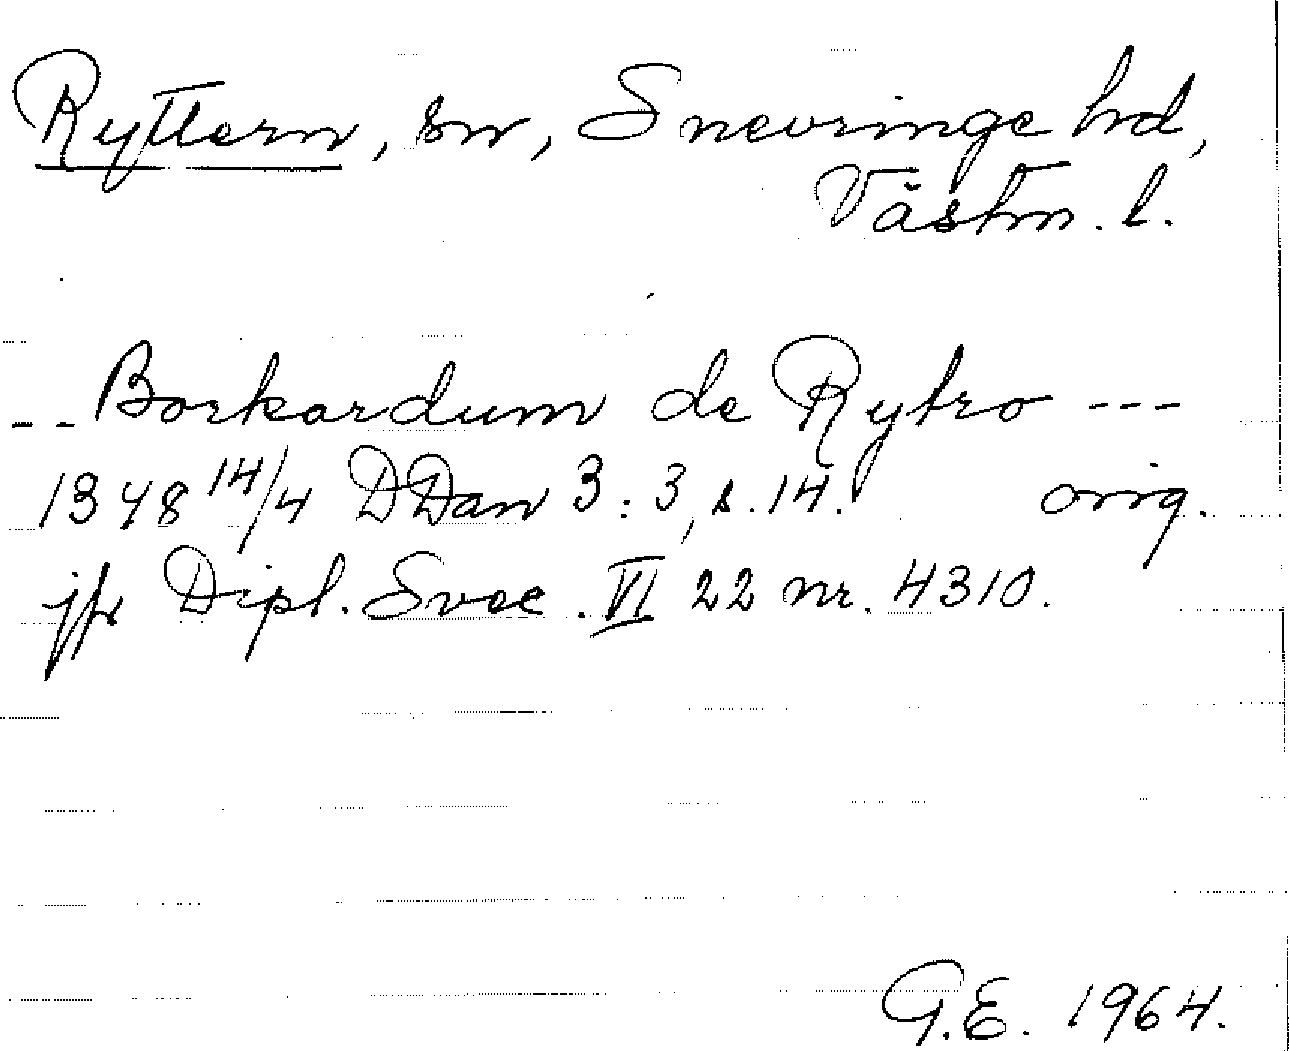 Ryttern, sn, Snevringe hd,
Västm. l.
-- Borkardum de Rytro ---
1348 14/4 DDan 3:3, s. 14. orig.
jfr Dipl. Svec. VI 22 nr. 4310.
G.E. 1964.